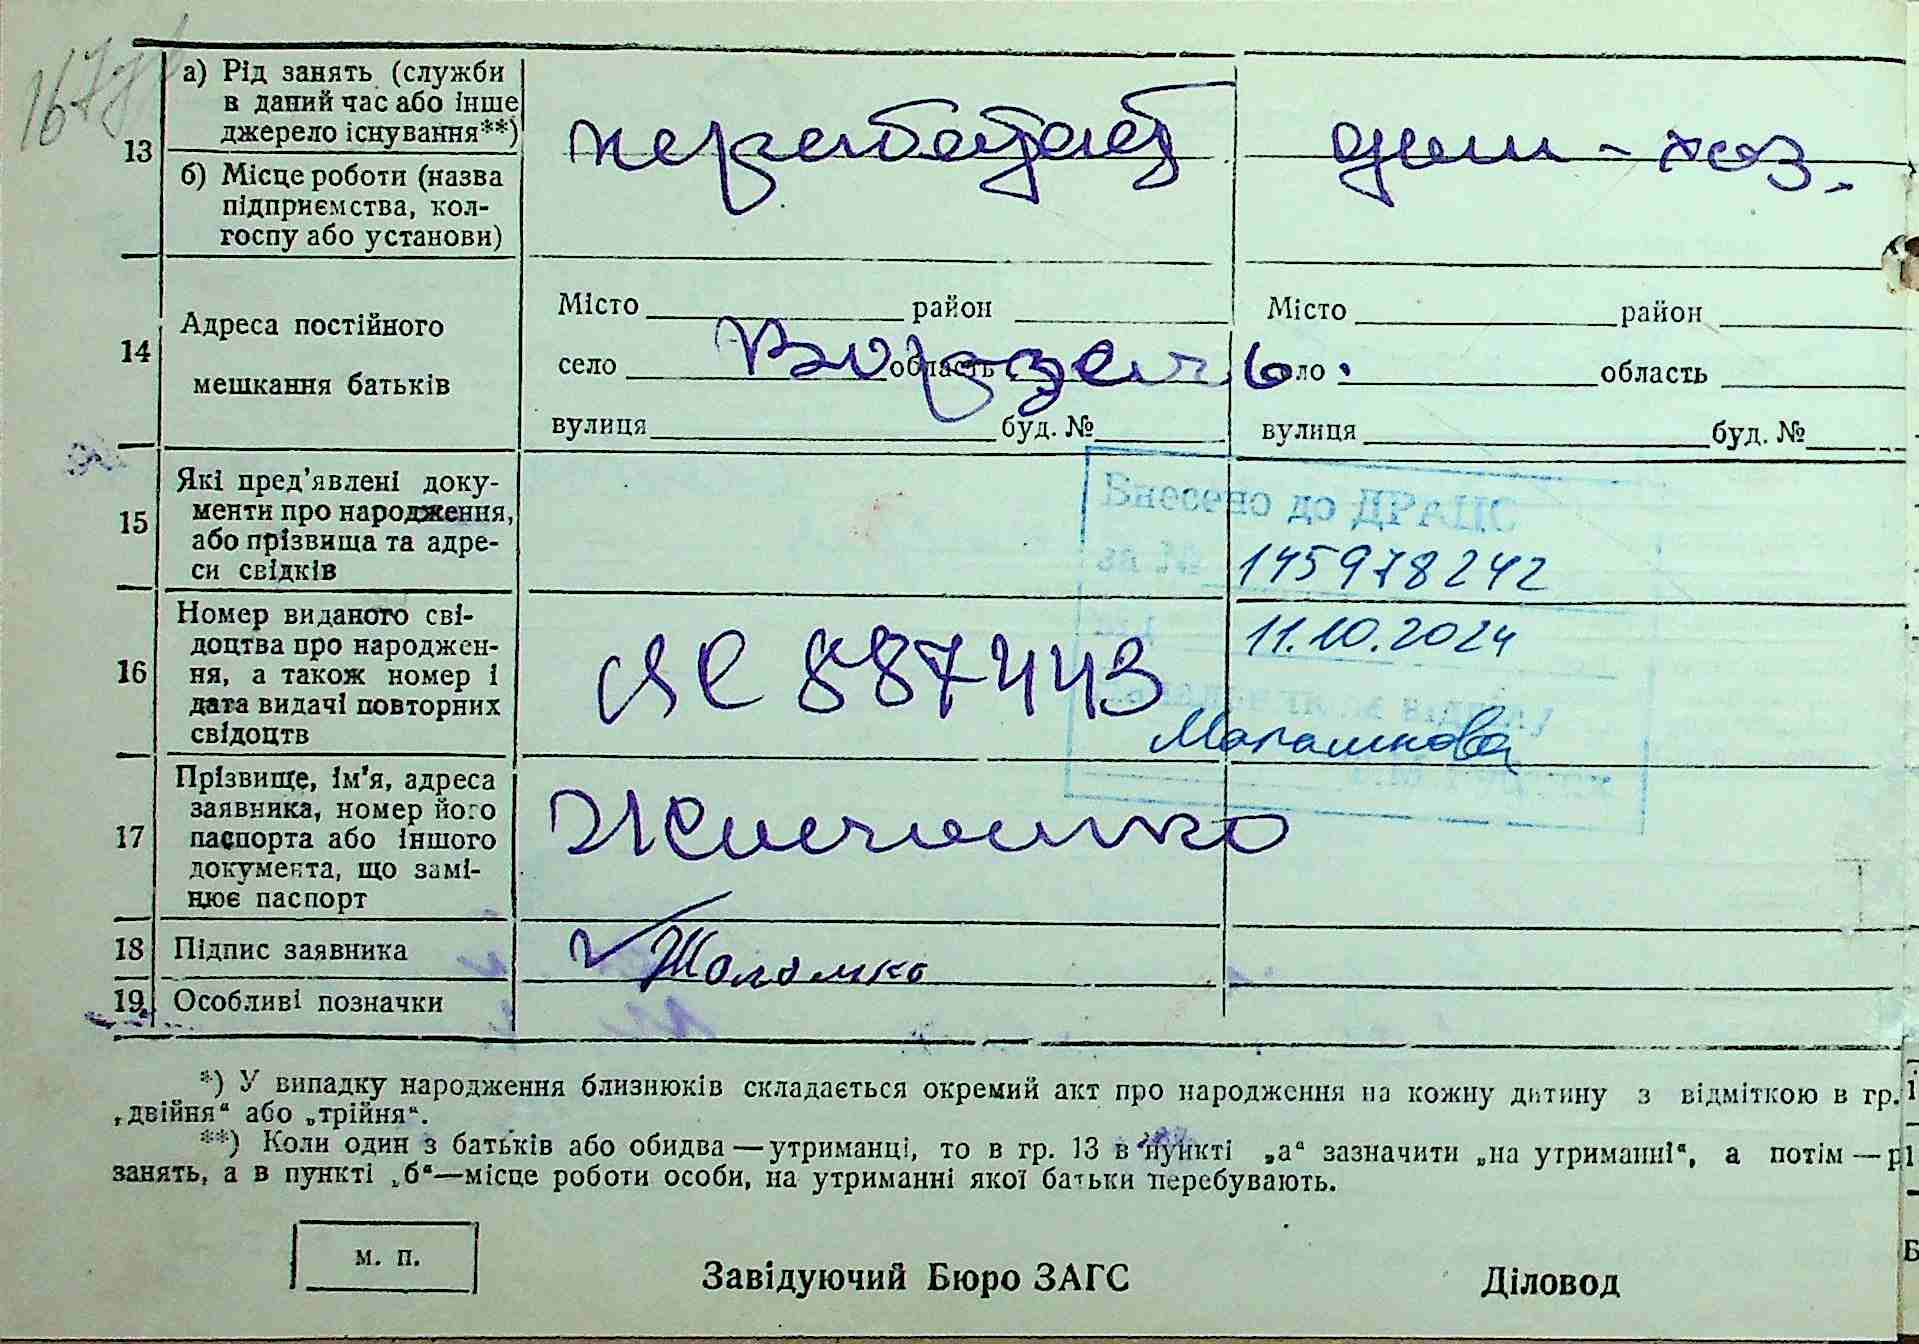 1677
13
а) Рід занять (служби
в даний час або інше
джерело існування**)
б) Місце роботи (назва
підприємства, кол-
госпу або установи)
неработает
дом-хоз.
14
Адреса постійного
мешкання батьків
Місто район
село область
вулиця буд. №
Ворзель.
Місто район
село область
вулиця буд. №
15
Які пред'явлені доку-
менти про народження,
або прізвища та адре-
си свідків
Внесено до ДРАЦС
за № 145978242
від 11.10.2024
16
Номер виданого сві-
доцтва про народжен-
ня, а також номер і
дата видачі повторних
свідоцтв
ЯС 887443
17
Прізвище, ім'я, адреса
заявника, номер його
паспорта або іншого
документа, що замі-
нює паспорт
18 Підпис заявника
19. Особливі позначки
*) У випадку народження близнюків складається окремий акт про народження на кожну дитину з відміткою в гр. 1
„двійня“ або „трійня“.
**) Коли один з батьків або обидва — утриманці, то в гр. 13 в пункті „а“ зазначити „на утриманні“, а потім — р
занять, а в пункті „б“—місце роботи особи, на утриманні якої батьки перебувають.
м. п.
Завідуючий Бюро ЗАГС
Діловод